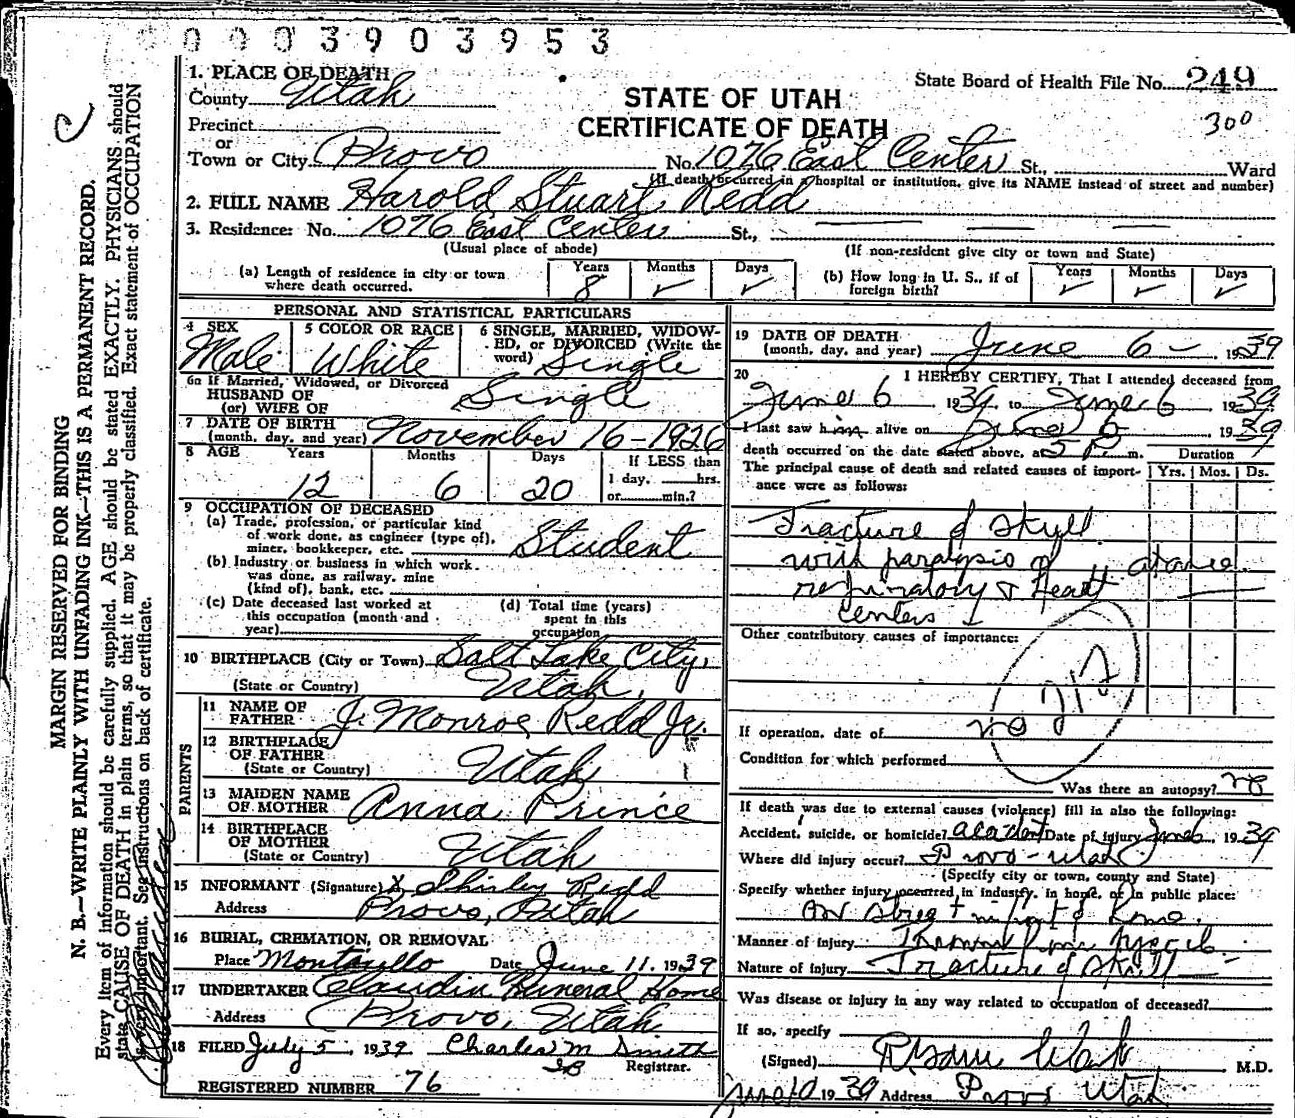 0003903953
1. PLACE OF DEATH
County Utah
State Board of Health File No. 249
300
STATE OF UTAH
CERTIFICATE OF DEATH
Precinct
or
Town or City Provo No. 1076 East Center St., Ward
(If death occurred in a hospital or institution, give its NAME instead of street and number)
2. FULL NAME Harold Stuart Redd
3. Residence: No. 1076 East Center St.,
(Usual place of abode) (If non-resident give city or town and State)
(a) Length of residence in city or town where death occurred. Years 8 Months ✓ Days ✓
(b) How long in U. S., if of foreign birth? Years ✓ Months ✓ Days ✓
PERSONAL AND STATISTICAL PARTICULARS
4 SEX Male
5 COLOR OR RACE White
6 SINGLE, MARRIED, WIDOWED, OR DIVORCED (Write the word) Single
6a If Married, Widowed, or Divorced
HUSBAND OF
(or) WIFE OF Single
7 DATE OF BIRTH
(month, day, and year) November 16-1926
8 AGE Years 12 Months 6 Days 20
If LESS than
1 day, hrs.
or min.?
9 OCCUPATION OF DECEASED
(a) Trade, profession, or particular kind
of work done, as engineer (type of),
miner, bookkeeper, etc. Student
(b) Industry or business in which work
was done, as railway, mine
(kind of), bank, etc.
(c) Date deceased last worked at
this occupation (month and
year)
(d) Total time (years)
spent in this
occupation
10 BIRTHPLACE (City or Town) Salt Lake City,
(State or Country) Utah,
PARENTS
11 NAME OF
FATHER J. Monroe Redd Jr.
12 BIRTHPLACE
OF FATHER
(State or Country) Utah
13 MAIDEN NAME
OF MOTHER Anna Prince
14 BIRTHPLACE
OF MOTHER
(State or Country) Utah
15 INFORMANT (Signature) X Shirley Redd
Address Provo, Utah
16 BURIAL, CREMATION, OR REMOVAL
Place Monticello Date June 11. 1939
17 UNDERTAKER Claudin Funeral Home
Address Provo, Utah
18 FILED July 5, 1939 Charles M Smith
Registrar.
REGISTERED NUMBER 76
19 DATE OF DEATH
(month, day, and year) June 6- 1939
20 I HEREBY CERTIFY, That I attended deceased from
June 6 1939, to June 6 1939
I last saw him alive on June 6 1939
death occurred on the date stated above, at 5 P. m. Duration
The principal cause of death and related causes of importance were as follows: Yrs. Mos. Ds.
Fracture of skull
with paralysis of at once
respiratory & Heart
centers
Other contributory causes of importance:
If operation, date of no
Condition for which performed
Was there an autopsy? no
If death was due to external causes (violence) fill in also the following:
Accident, suicide, or homicide? accident Date of injury June 6, 1939
Where did injury occur? Provo - Utah
(Specify city or town, county and State)
Specify whether injury occurred in industry, in home, or in public place:
on street in front of home.
Manner of injury Thrown from
Nature of injury Fracture of skull
Was disease or injury in any way related to occupation of deceased?
If so, specify
(Signed) M.D.
June 10 1939 Address Provo Utah
MARGIN RESERVED FOR BINDING
N. B.—WRITE PLAINLY WITH UNFADING INK—THIS IS A PERMANENT RECORD.
Every item of information should be carefully supplied. AGE should be stated EXACTLY. PHYSICIANS should
state CAUSE OF DEATH in plain terms, so that it may be properly classified. Exact statement of OCCUPATION
is very important. See instructions on back of certificate.